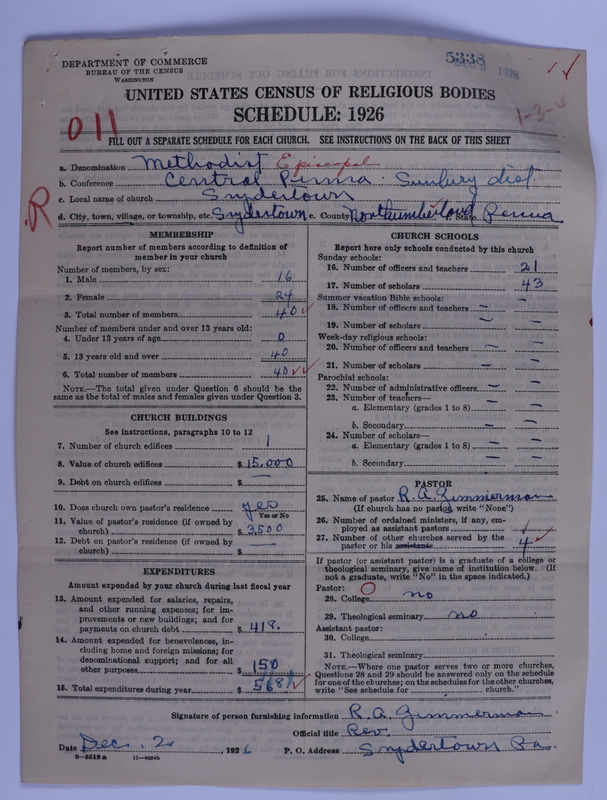 DEPARTMENT OF COMMERCE
BUREAU OF THE CENSUS
WASHINGTON
5338
1926
UNITED STATES CENSUS OF RELIGIOUS BODIES
SCHEDULE: 1926
1-3-4
011
FILL OUT A SEPARATE SCHEDULE FOR EACH CHURCH. SEE INSTRUCTIONS ON THE BACK OF THIS SHEET
a. Denomination Methodist Episcopal
b. Conference Central Penna. Sunbury dist.
c. Local name of church Snydertown
R
d. City, town, village, or township, etc. Snydertown e. County Northumberland f. State Penna
MEMBERSHIP
Report number of members according to definition of
member in your church
Number of members, by sex:
1. Male 16
2. Female 24
3. Total number of members 40
Number of members under and over 13 years old:
4. Under 13 years of age 0
5. 13 years old and over 40
6. Total number of members 40
NOTE.—The total given under Question 6 should be
same as the total of males and females given under Question 3.
CHURCH BUILDINGS
See instructions, paragraphs 10 to 12
7. Number of church edifices 1
8. Value of church edifices $15,000
9. Debt on church edifices $ —
10. Does church own pastor's residence yes
Yes or No
11. Value of pastor's residence (if owned by
church) $3,500
12. Debt on pastor's residence (if owned by
church) $ —
EXPENDITURES
Amount expended by your church during last fiscal year
13. Amount expended for salaries, repairs,
and other running expenses; for im-
provements or new buildings; and for
payments on church debt $418.
14. Amount expended for benevolences, in-
cluding home and foreign missions; for
denominational support; and for all
other purposes $150
15. Total expenditures during year $568
CHURCH SCHOOLS
Report here only schools conducted by this church
Sunday schools:
16. Number of officers and teachers 21
17. Number of scholars 43
Summer vacation Bible schools:
18. Number of officers and teachers —
19. Number of scholars —
Week-day religious schools:
20. Number of officers and teachers —
21. Number of scholars —
Parochial schools:
22. Number of administrative officers —
23. Number of teachers—
a. Elementary (grades 1 to 8) —
b. Secondary —
24. Number of scholars—
a. Elementary (grades 1 to 8) —
b. Secondary —
PASTOR
25. Name of pastor R. A. Zimmerman
(If church has no pastor, write "None")
26. Number of ordained ministers, if any, em-
ployed as assistant pastors
27. Number of other churches served by the
pastor or his assistants 4
If pastor (or assistant pastor) is a graduate of a college or
theological seminary, give name of institution below. (If
not a graduate, write "No" in the space indicated.)
Pastor:
28. College no
29. Theological seminary no
Assistant pastor:
30. College
31. Theological seminary
NOTE.—Where one pastor serves two or more churches,
Questions 28 and 29 should be answered only on the schedule
for one of the churches; on the schedules for the other churches,
write "See schedule for church."
Signature of person furnishing information R. A. Zimmerman
Official title Rev.
Date Dec. 20, 1926 P. O. Address Snydertown Pa.
8-5518a 11-9084b